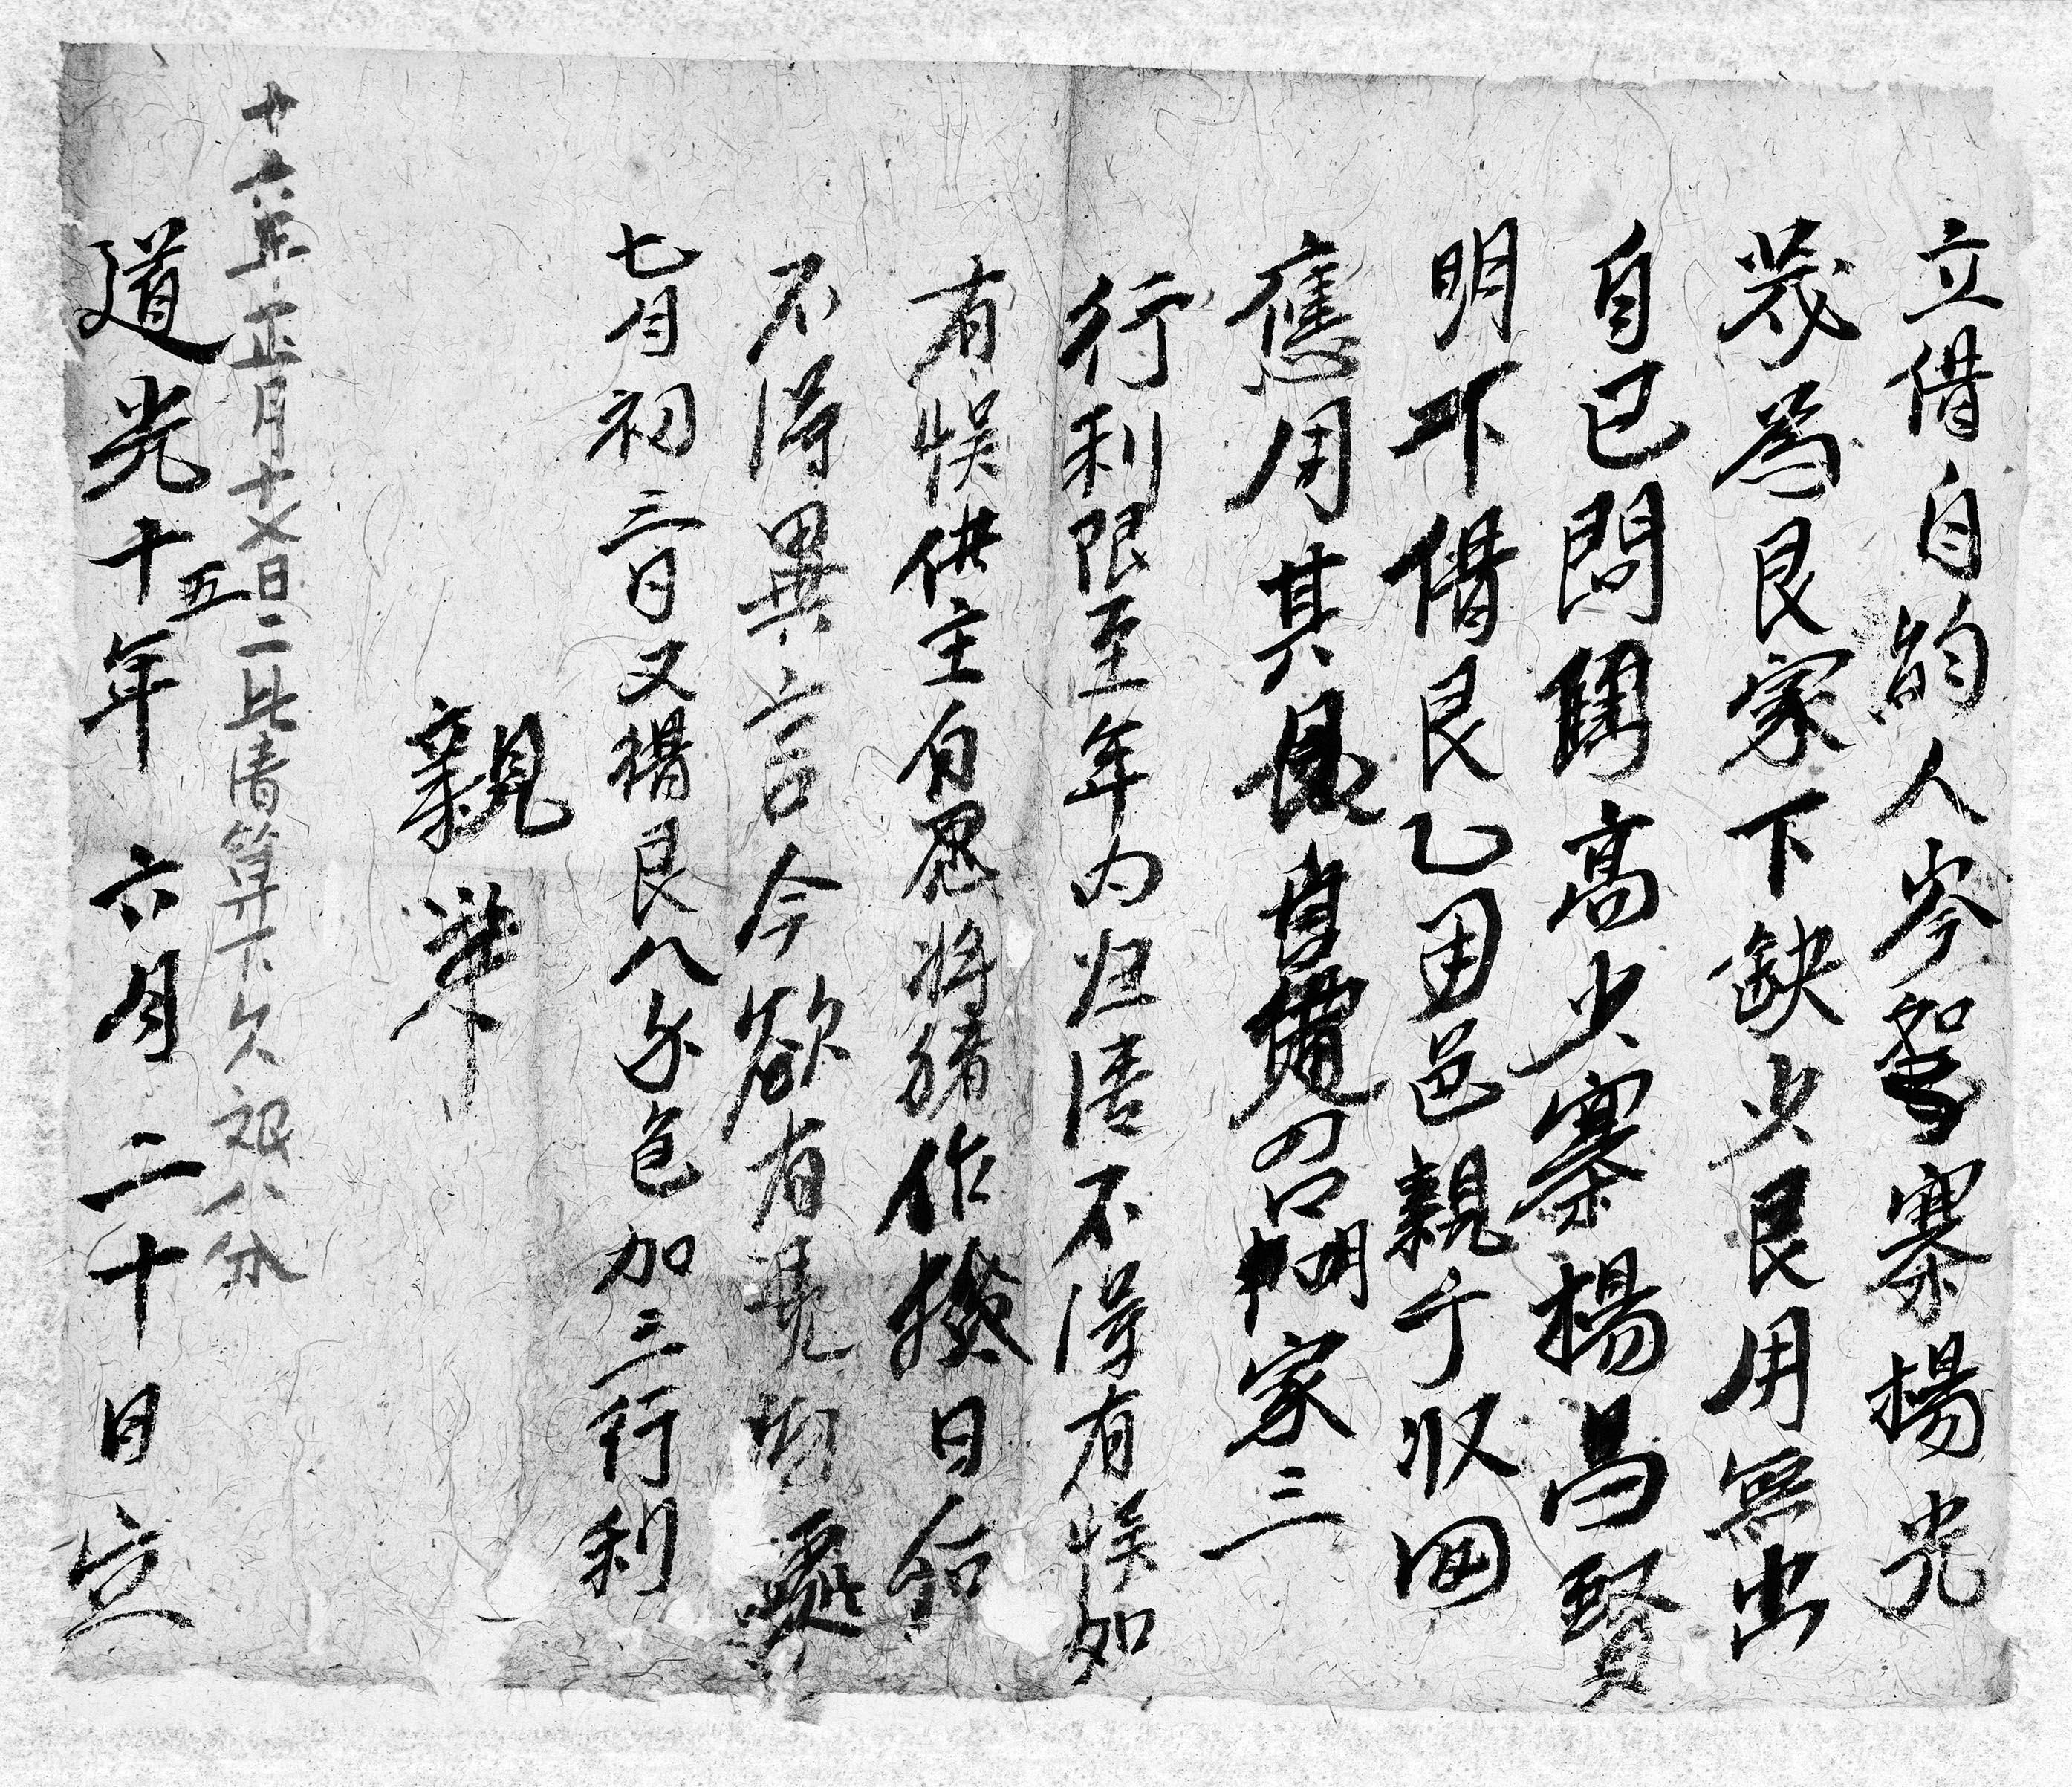 立借自的人岑𢃄寨楊光
歲為艮家下缺少艮用無出
自已問到高少寨楊昌賢
明下借艮乙両邑親手收回
應用其艮自借召𢃄家三
行利限至年内归清不得有悞如
有悞供主自愿将猪作撥日后
不得異言今欲有憑
七月初三日又楊艮八分色加三行利
親筆
十六年正月十七日二比清算下欠艮八分
道光十五年六月二十日立